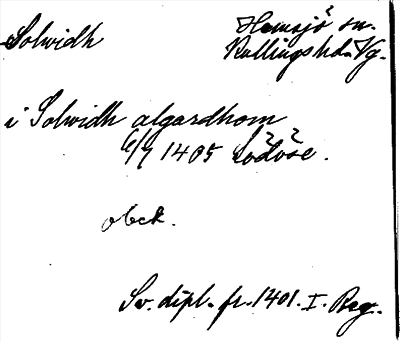 Solwidh
Hemsjö sn.
Kullings hd. Vg.
i Solwidh algardhom
6/7 1405 Lödöse.
obek.
Sv. dipl. fr. 1401. I. Reg.